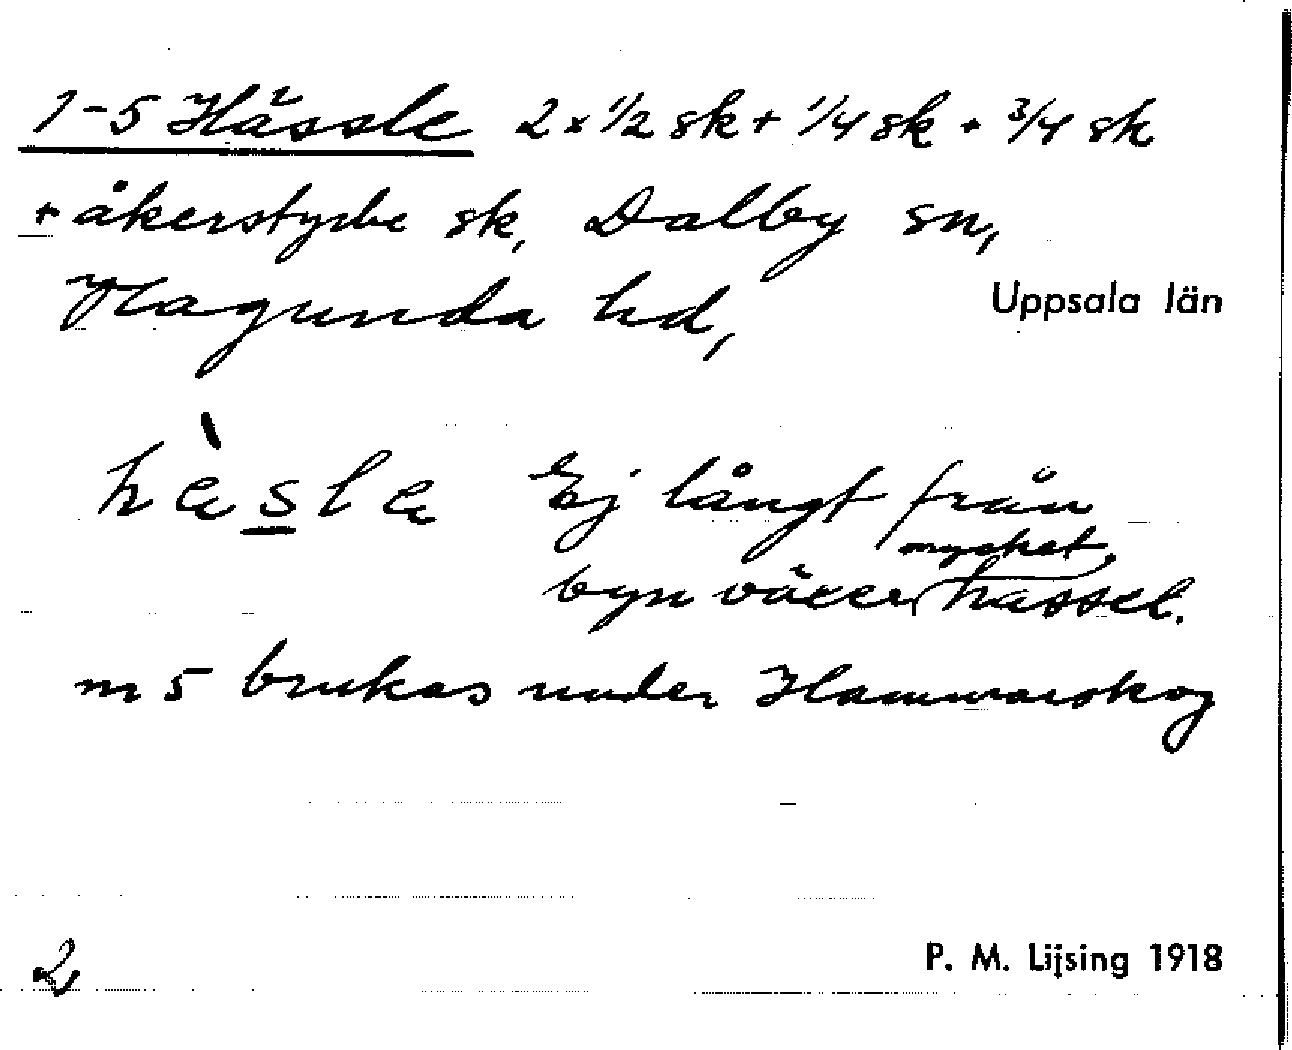 1-5 Hässle 2 x 1/2 sk + 1/4 sk + 3/4 sk
+ åkerstycke sk, Dalby sn,
Hagunda hd, Uppsala län
hὲsla Ej långt från
byn växer mycket hassel.
nr 5 brukas under Hammarskog
2 P. M. Lijsing 1918